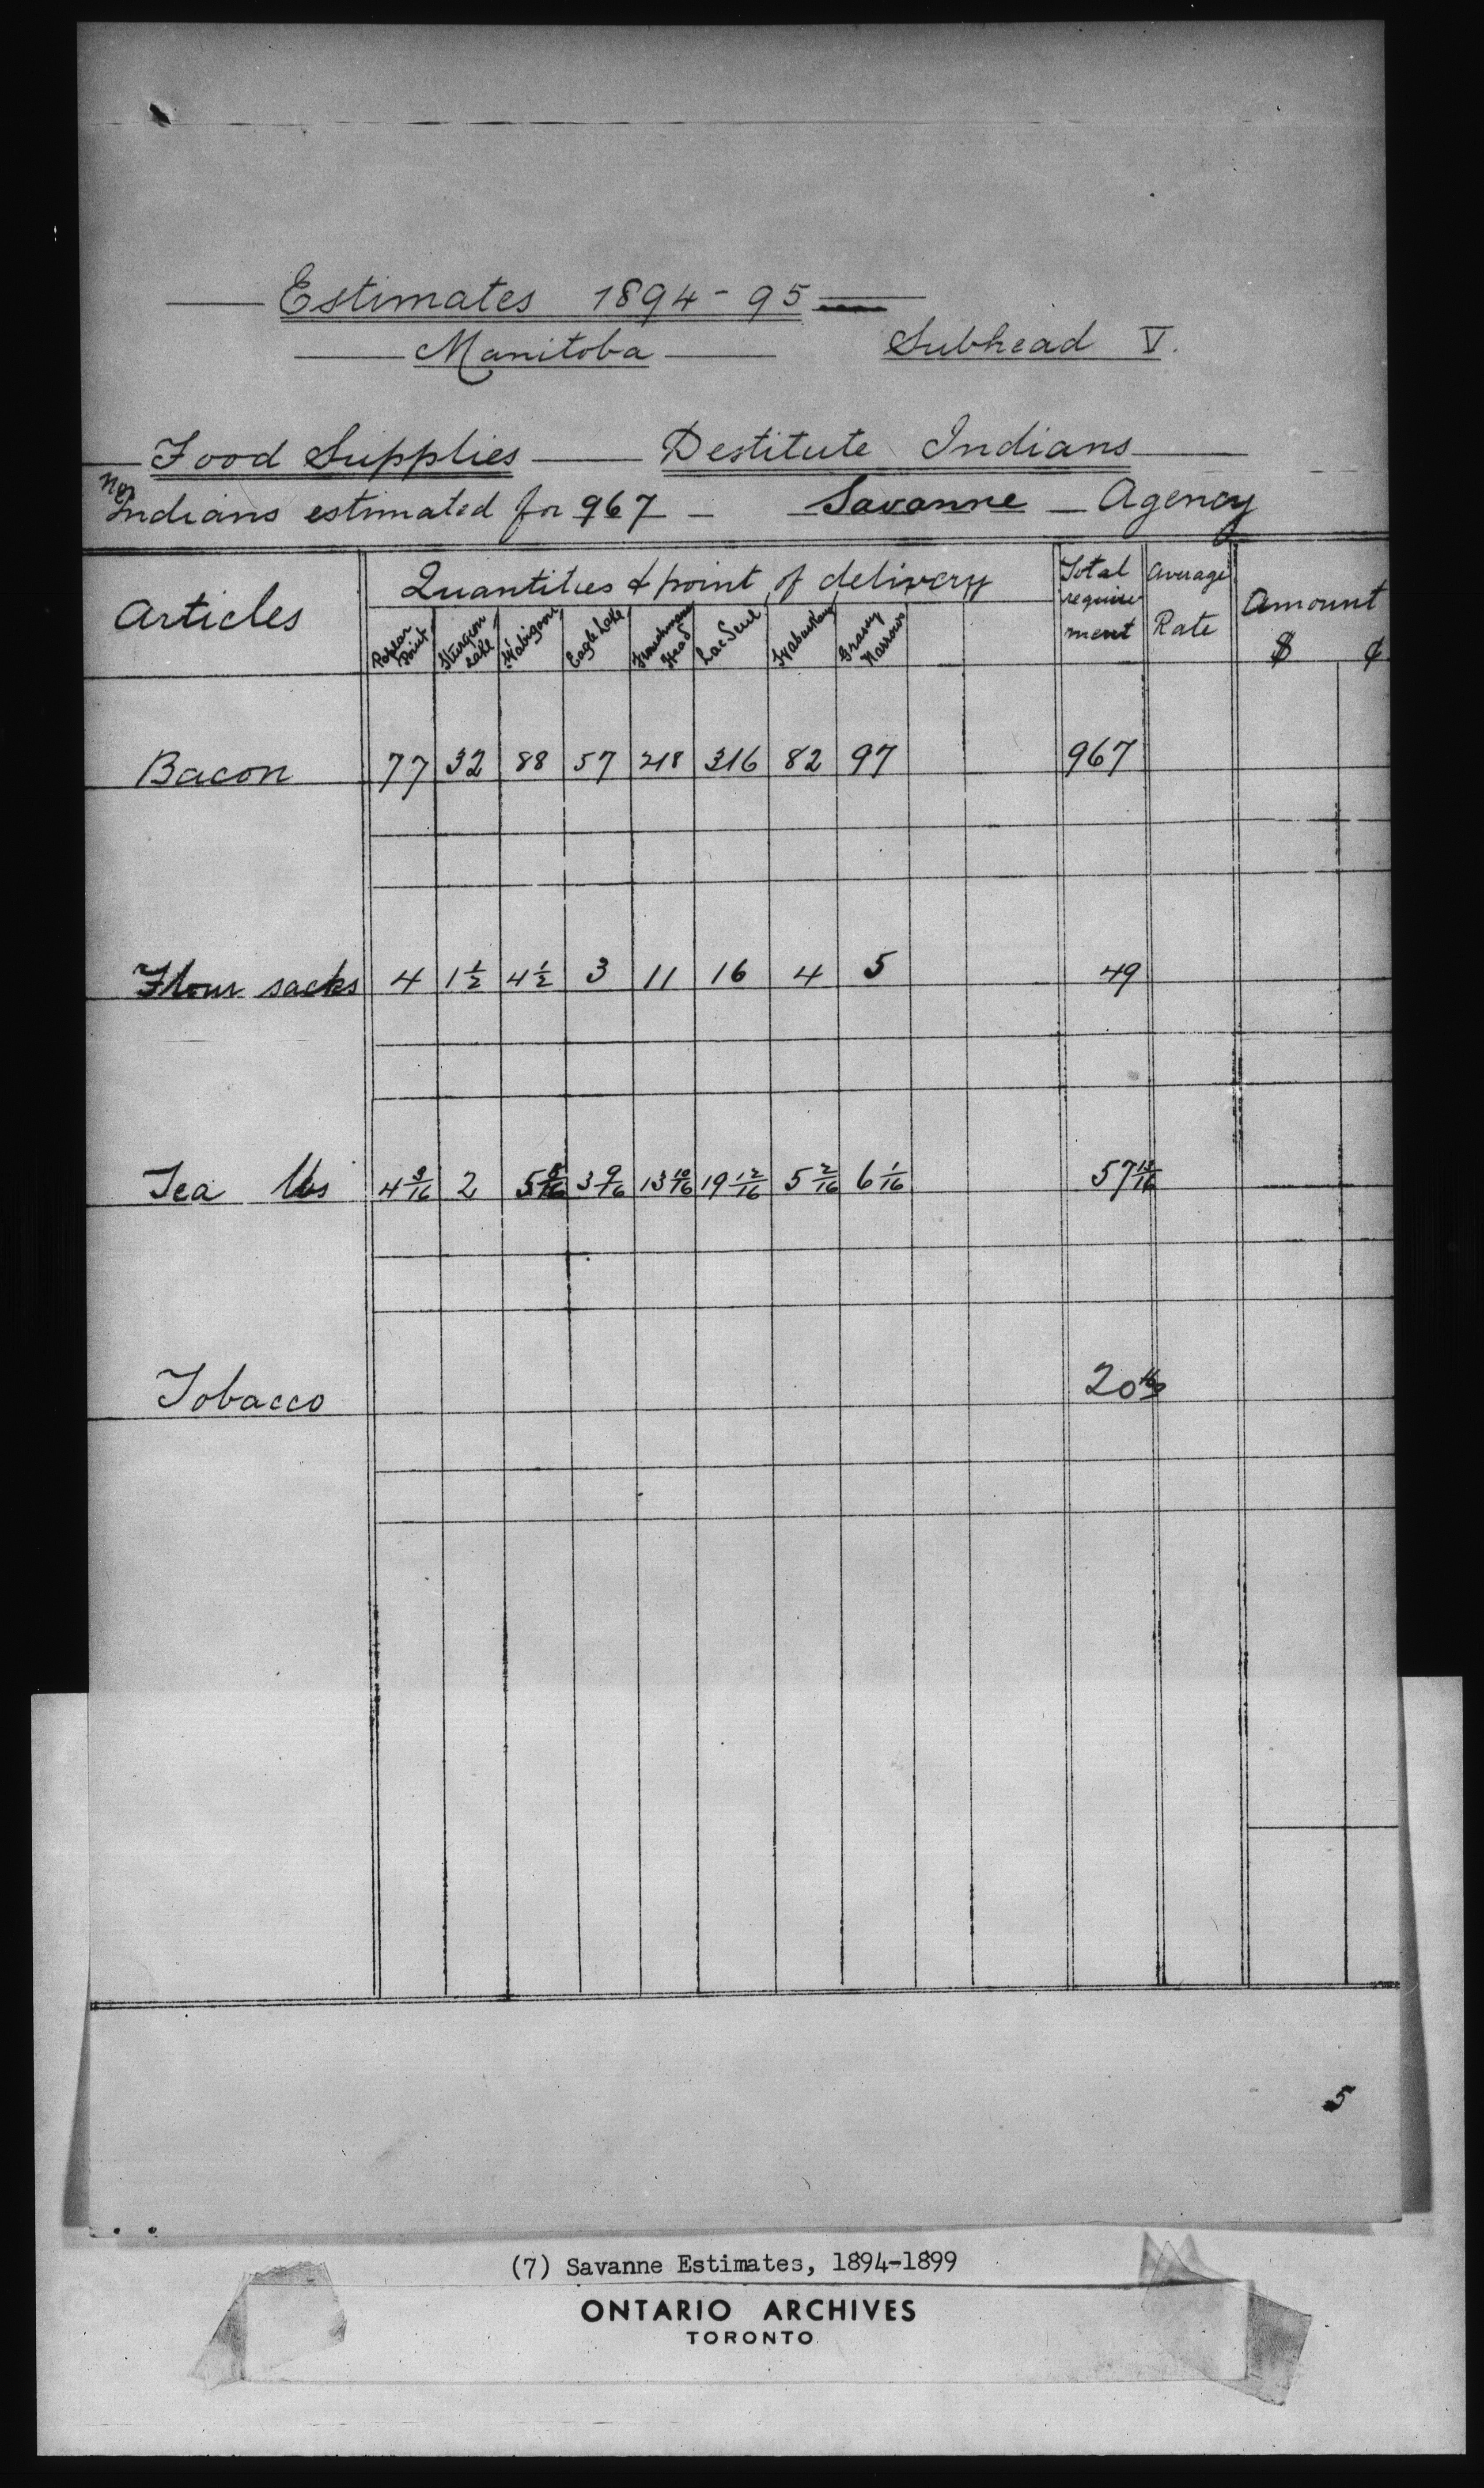 Estimates 1894-95
Manitoba Subhead V.
Food Supplies Destitute Indians
No.
Indians estimated for 967 - Savanne - Agency
Articles Quantities & point of delivery Total requirement Average Rate Amount $ ¢
Poplar Point Sturgeon Lake Wabigoon Eagle Lake Frenchmans Head Lac Seul Wabuskang Grassy Narrows
Bacon 77 32 88 57 218 316 82 97 967
Flour sacks 4 1½ 4½ 3 11 16 4 5 49
Tea lbs 4 2 3 9/16 13 10/16 19 12/16 5 2/16 6 1/16 57
Tobacco 20
5
(7) Savanne Estimates, 1894-1899
ONTARIO ARCHIVES
TORONTO